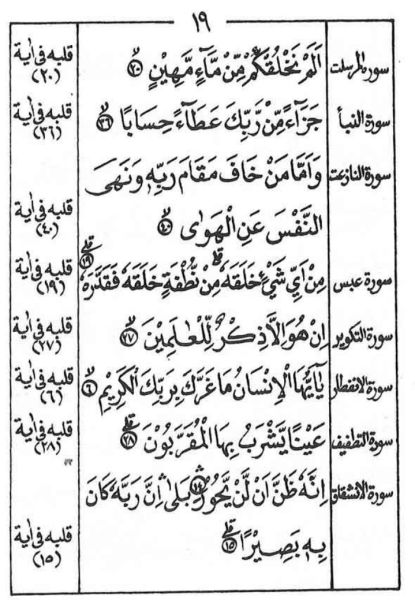 ١٩
سورة المرسلت اَلَمْ نَخْلُقْكُّمْ مِّنْ مَّآءٍ مَّهِيْنٍ ٢٠ قلبه فى اية (٢٠)
سورة النبأ جَزَآءً مِّنْ رَّبِّكَ عَطَآءً حِسَابًا ٣٦ قلبه فى اية (٣٦)
سورة النازعت وَاَمَّا مَنْ خَافَ مَقَامَ رَبِّهٖ وَنَهَى
النَّفْسَ عَنِ الْهَوٰى ٤٠ قلبه فى اية (٤٠)
سورة عبس مِنْ اَيِّ شَيْءٍ خَلَقَهٗ مِنْ نُّطْفَةٍ خَلَقَهٗ فَقَدَّرَهٗ ١٩ قلبه فى اية (١٩)
سورة التكوير اِنْ هُوَ اِلَّا ذِكْرٌ لِّلْعٰلَمِيْنَ ٢٧ قلبه فى اية (٢٧)
سورة الانفطار يٰٓاَيُّهَا الْاِنْسَانُ مَا غَرَّكَ بِرَبِّكَ الْكَرِيْمِ ٦ قلبه فى اية (٦)
سورة التطفيف عَيْنًا يَّشْرَبُ بِهَا الْمُقَرَّبُوْنَ ٢٨ قلبه فى اية (٢٨)
سورة الانشقاق اِنَّهٗ ظَنَّ اَنْ لَّنْ يَّحُوْرَ ١٤ بَلٰى اِنَّ رَبَّهٗ كَانَ
بِهٖ بَصِيْرًا ١٥ قلبه فى اية (١٥)